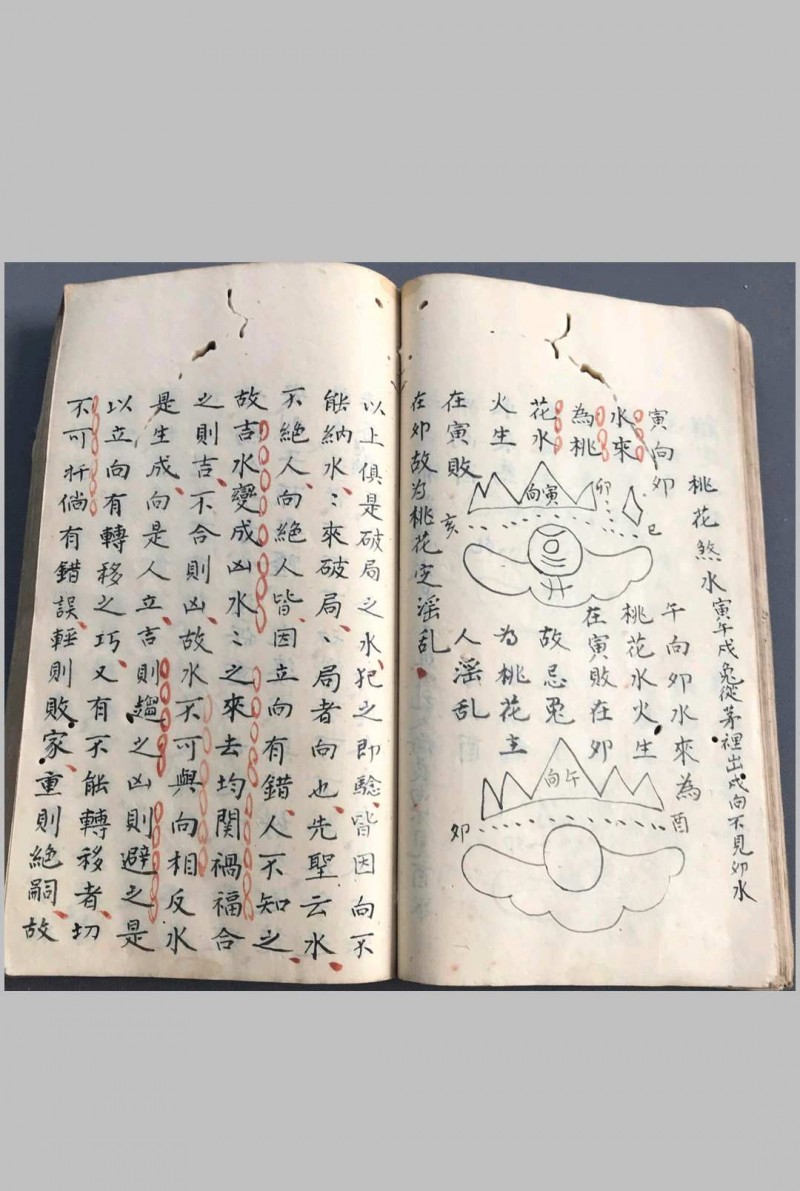 桃花煞水
寅午戌兔從茅裡出戌向不見卯水
寅向卯
水來
為桃
花水
火生
在寅敗
在卯故为桃花定滛乱
寅向
卯
巳
亥
午向卯水來為
桃花水火生
在寅敗在卯
故忌兔
为桃花主
人滛乱
午向
酉
卯
以上俱是破局之水犯之即驗皆因向不
能納水〻來破局〻局者向也先聖云水
不絕人向絕人皆因立向有錯人不知之
故吉水變成凶水〻之來去均関禍福合
之則吉不合則凶故水不可與向相反水
是生成向是人立吉則趨之凶則避之是
以立向有轉移之巧又有不能轉移者切
不可扦倘有錯誤輕則敗家重則絕嗣故